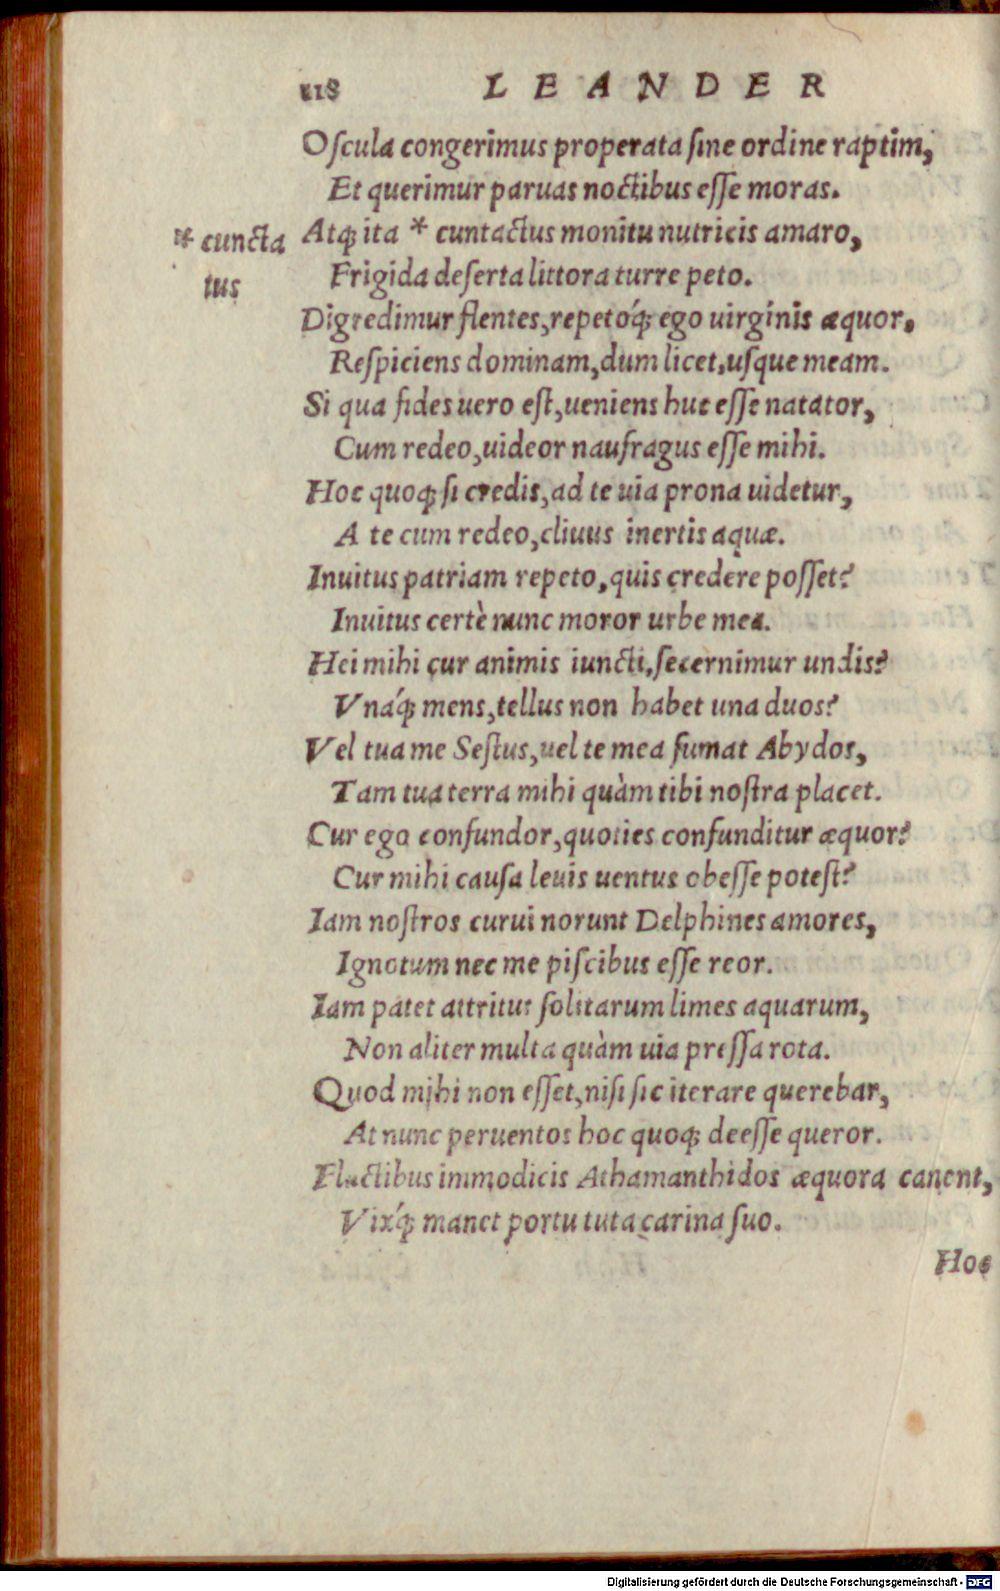 118 LEANDER
Oſcula congerimus properata ſine ordine raptim,
Et querimur paruas noctibus eſſe moras.
Atq; ita * cuntactus monitu nutricis amaro,
* cuncta
tus
Frigida deſerta littora turre peto.
Digredimur flentes, repetóq; ego uirginis æquor,
Reſpiciens dominam, dum licet, uſque meam.
Si qua fides uero eſt, ueniens huc eſſe natator,
Cum redeo, uideor naufragus eſſe mihi.
Hoc quoq; ſi credis, ad te uia prona uidetur,
A te cum redeo, cliuus inertis aquæ.
Inuitus patriam repeto, quis credere poſſet?
Inuitus certè nunc moror urbe mea.
Hei mihi cur animis iuncti, ſecernimur undis?
Vnáq; mens, tellus non habet una duos?
Vel tua me Seſtus, uel te mea ſumat Abydos,
Tam tua terra mihi quàm tibi noſtra placet.
Cur ego confundor, quoties confunditur æquor?
Cur mihi cauſa leuis uentus obeſſe poteſt?
Iam noſtros curui norunt Delphines amores,
Ignotum nec me piſcibus eſſe reor.
Iam patet attritus ſolitarum limes aquarum,
Non aliter multa quàm uia preſſa rota.
Quod mihi non eſſet, niſi ſic iterare querebar,
At nunc peruentos hoc quoq; deeſſe queror.
Fluctibus immodicis Athamanthidos æquora canent,
Vixq́; manet portu tuta carina ſuo.
Hoc
Digitalisierung gefördert durch die Deutsche Forschungsgemeinschaft - DFG